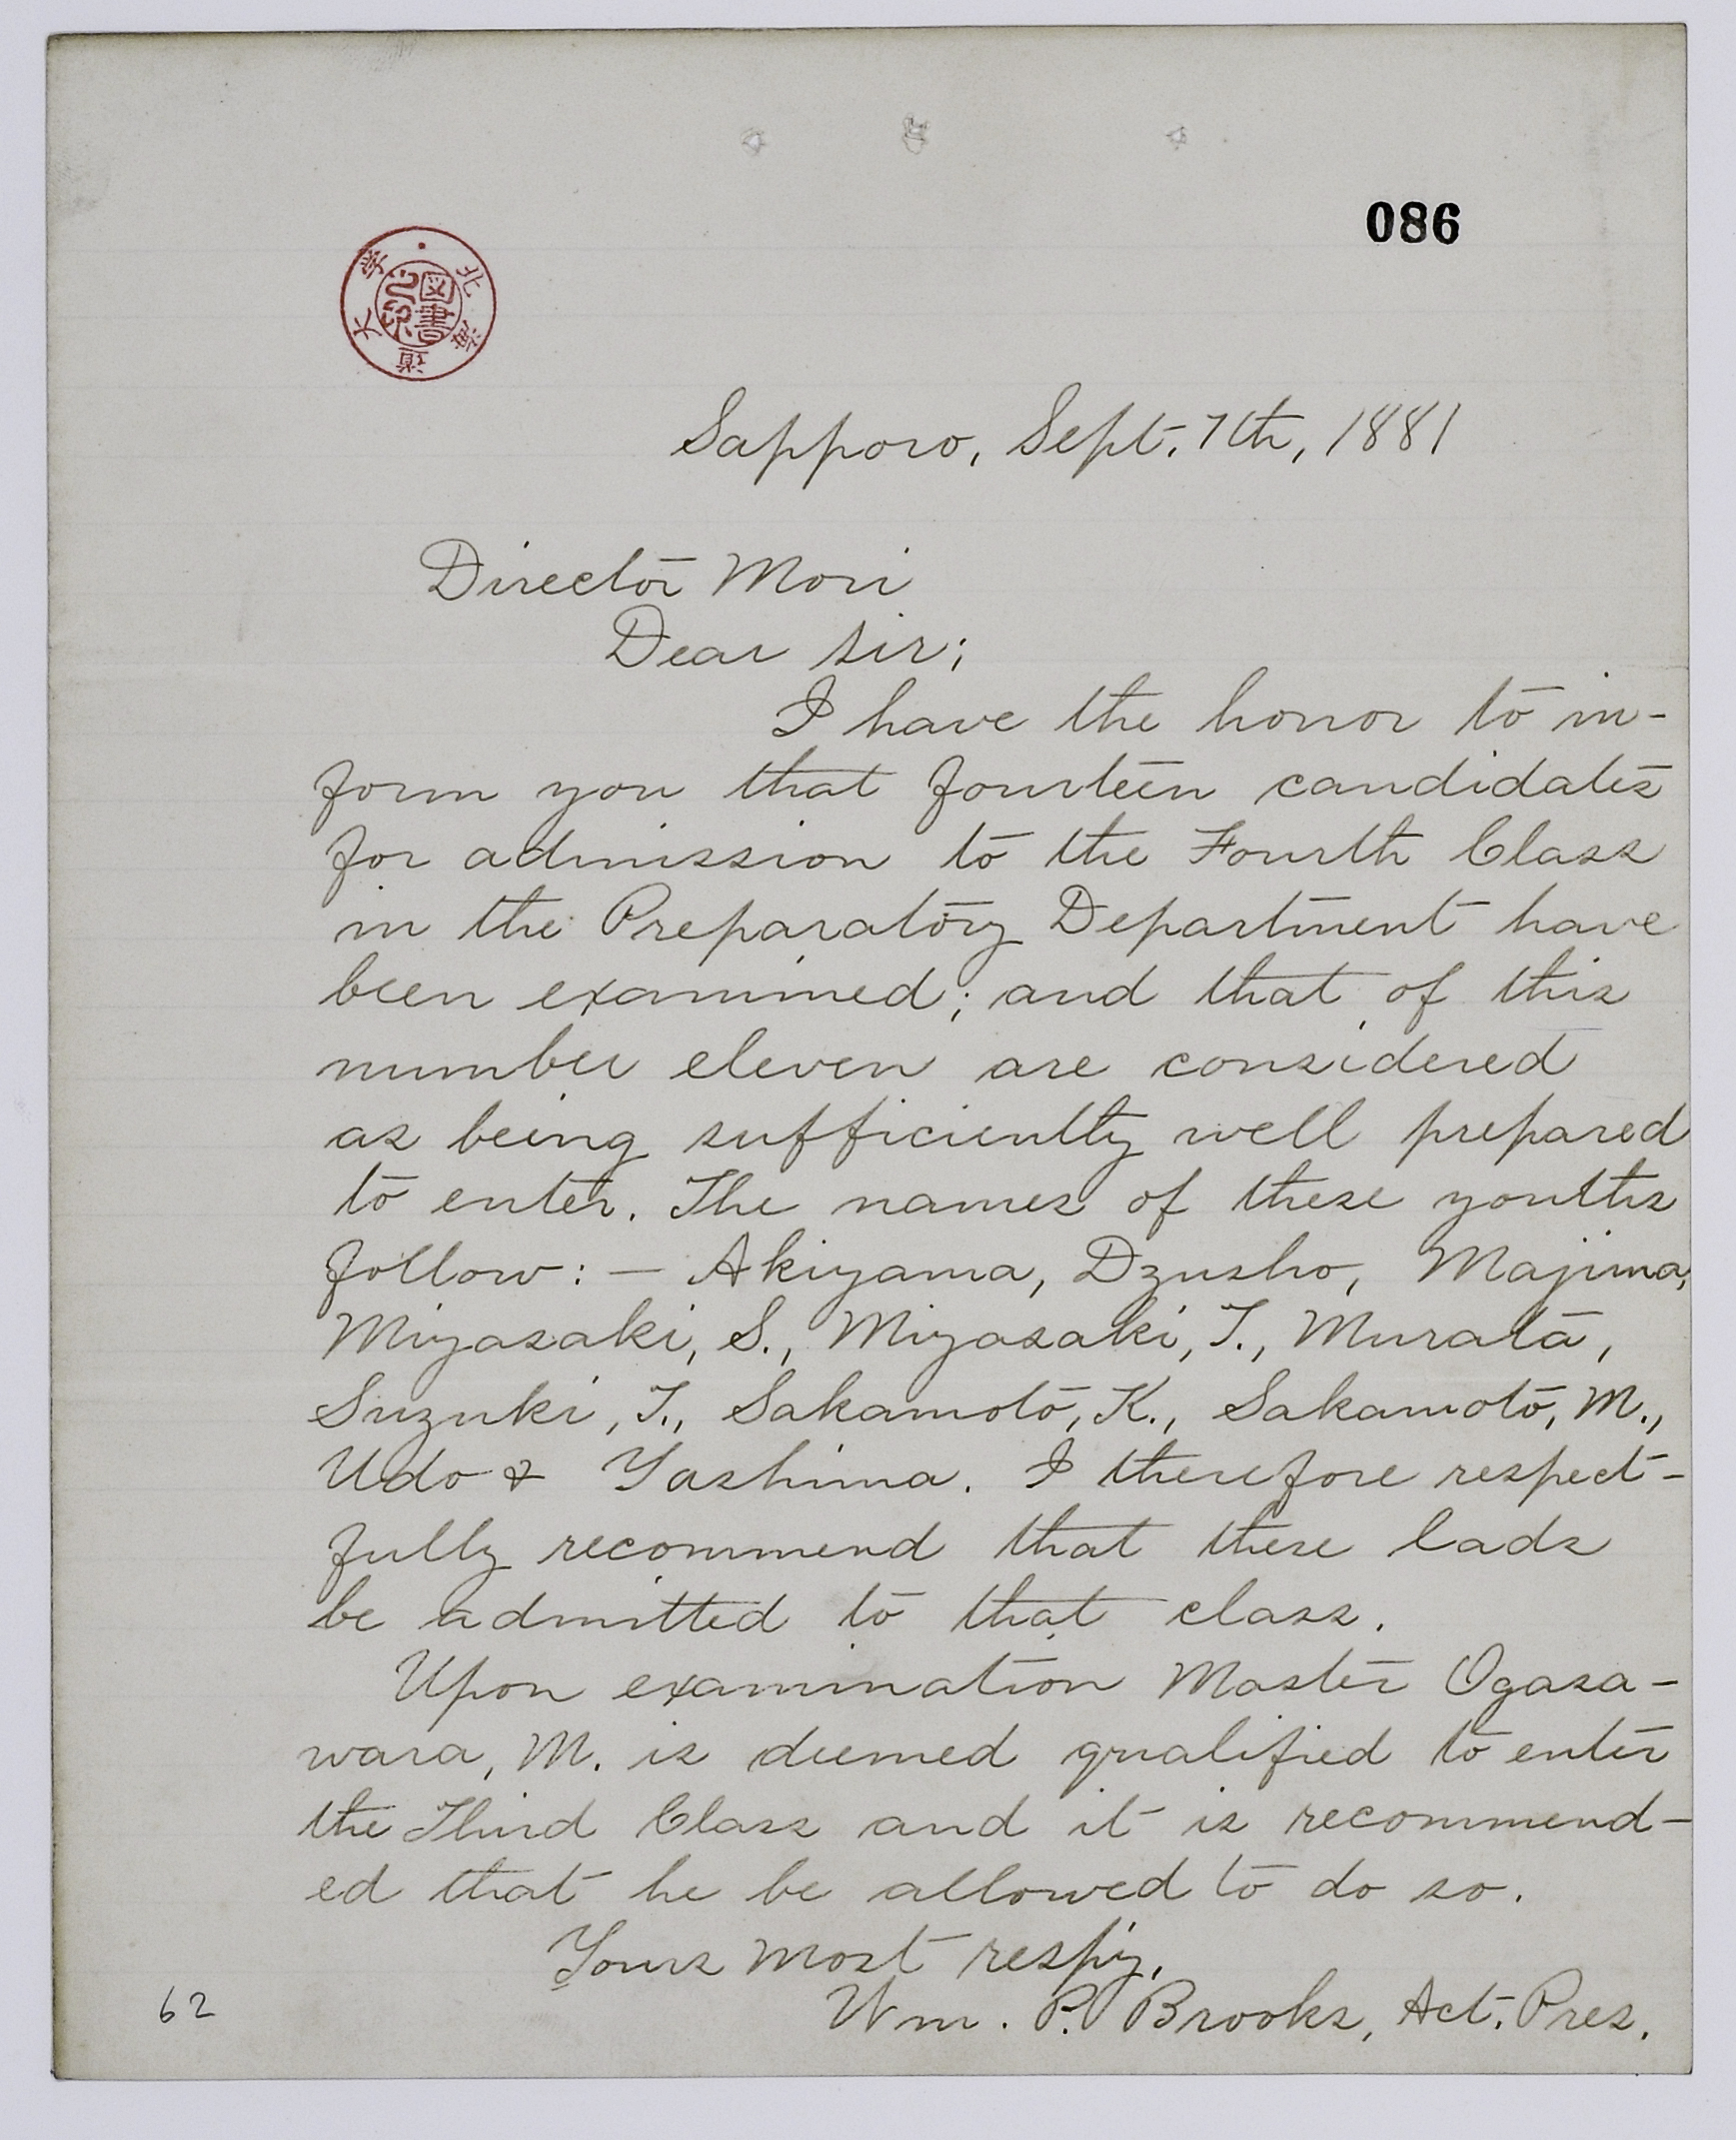 086
北海道大学
図書之印
Sapporo, Sept. 7th, 1881
Director Mori
Dear Sir;
I have the honor to in-
form you that fourteen candidates
for admission to the Fourth Class
in the Preparatory Department have
been examined; and that of this
number eleven are considered
as being sufficiently well prepared
to enter. The names of these youths
follow: — Akiyama, Dzusho, Majima,
Miyasaki, S., Miyasaki, T., Murata,
Suzuki, T., Sakamoto, K., Sakamoto, M.,
Udo & Yashima. I therefore respect-
fully recommend that these lads
be admitted to that class.
Upon examination Master Ogasa-
wara, M. is deemed qualified to enter
the Third Class and it is recommend-
ed that he be allowed to do so.
Yours most resp'y,
Wm. P. Brooks, Act. Pres.
62